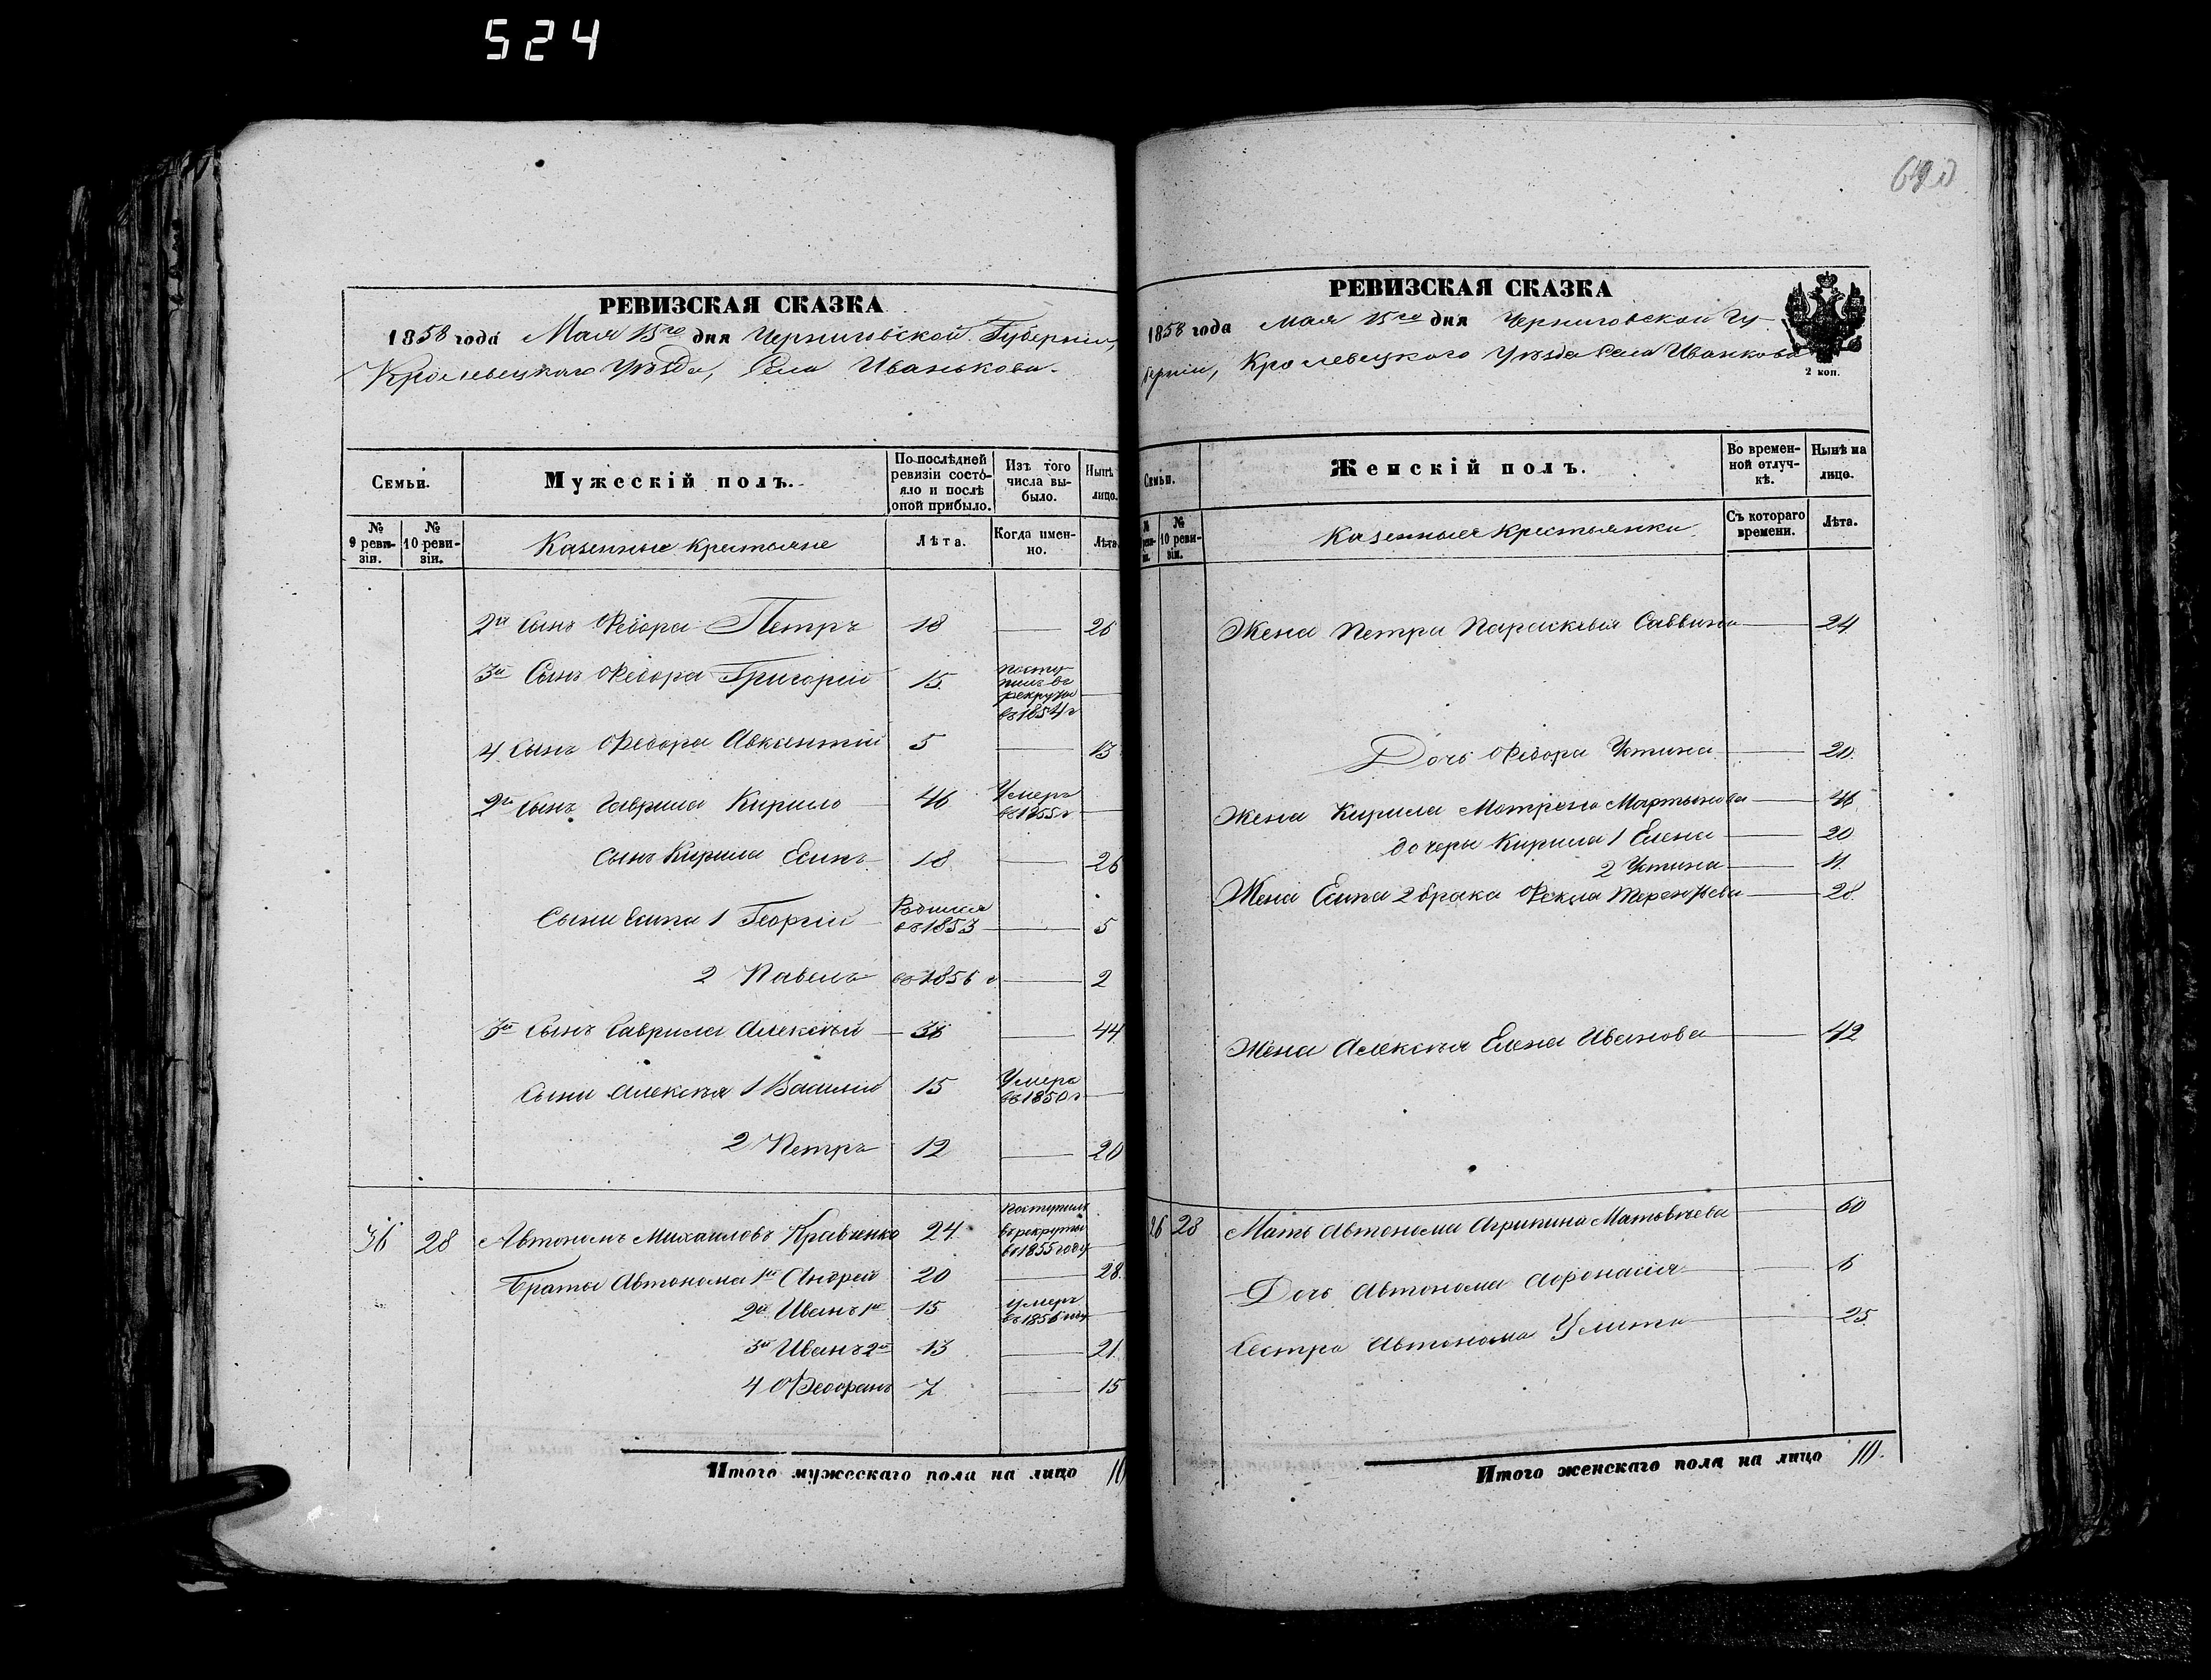 524
РЕВИЗСКАЯ СКАЗКА
1858 года Мая 15го дня Черниговской Губерніи,
Кролевецкаго Уѣзда, Села Иванькова.
Семьи.
Мужескій полъ.
По послѣдней ревизіи состояло и послѣ оной прибыло.
Изъ того числа выбыло.
Нынѣ
лицо.
№ 9 ревизіи.
№ 10 ревизіи.
Казенные крестьяне
Лѣта.
Когда именно.
Лѣта.
2й Сынъ Ѳедора Петръ 18 — 26
3й Сынъ Ѳедора Григорій 15 поступилъ въ рекруты въ 1854 г —
4. Сынъ Ѳедора Авксентій 5 — 13
2й Сынъ Гаврила Кирило 46 Умеръ въ 1855 г —
Сынъ Кирила Есипъ 18 — 26
Сыны Есипа 1 Георгій Родился въ 1853 — 5
2 Павелъ въ 1856 г — 2
3й Сынъ Гаврила Алексѣй 36 — 44
Сыны Алексѣя 1 Василій 15 Умеръ въ 1850 г —
2 Петръ 12 — 20
36 28 Автономъ Михайловъ Кравченко 24 поступилъ въ рекруты въ 1855 году —
Браты Автонома 1й Андрей 20 — 28.
2й Иванъ 1й 15 Умеръ въ 1856 году —
3й Иванъ 2й 13 — 21.
4 Ѳеофанъ 7 — 15
Итого мужескаго пола на лицо 10
РЕВИЗСКАЯ СКАЗКА
1858 года Мая 15го дня Черниговской Гу
берніи, Кролевецкаго Уѣзда Села Иванкова
2 коп.
Семьи.
Женскій полъ.
Во временной отлучкѣ.
Нынѣ на лицо.
№ 10 ревизіи.
Казенныя крестьянки
Съ котораго времени.
Лѣта.
Жена Петра Параскевія Саввина — 24
Дочь Ѳедора Устина — 20.
Жена Кирила Матрена Мартынова — 46
дочери Кирила 1 Елена — 20
2 Устина — 11.
Жена Есипа 2 брака Ѳекла Терентьева — 28.
Жена Алексѣя Елена Иванова — 42
28 Мать Автонома Агрипина Матвѣева — 60
Дочь Автонома Афонасія — 6
Сестра Автонома Улита — 25.
Итого женскаго пола на лицо 10.